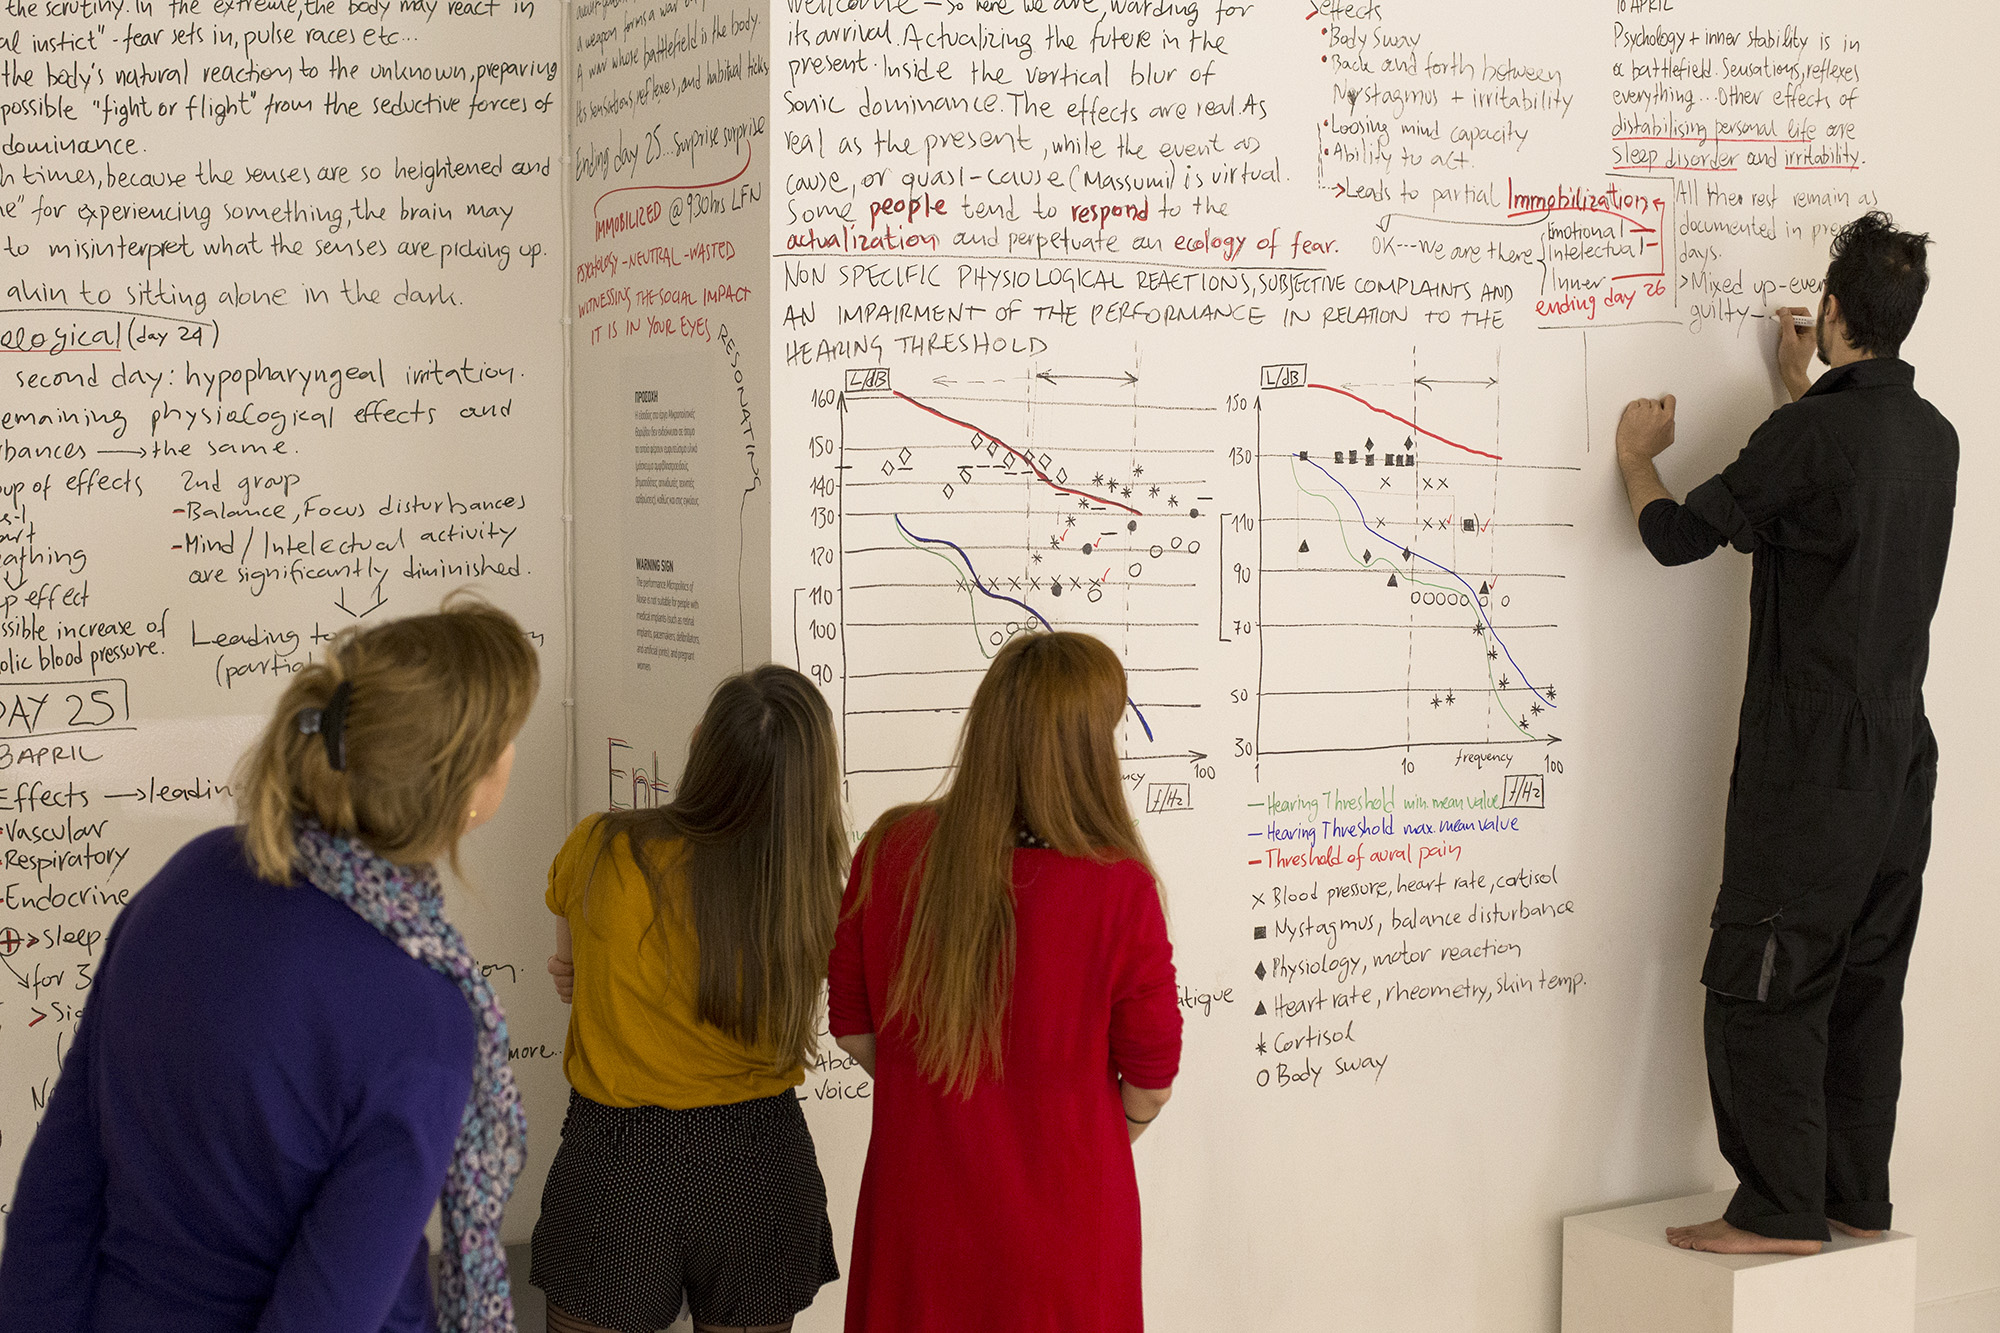 the scrutiny. In the extreme, the body may react in
al instict" - fear sets in, pulse races etc...
the body's natural reaction to the unknown, preparing
possible "fight or flight" from the seductive forces of
dominance.
h times, because the senses are so heightened and
e" for experiencing something, the brain may
to misinterpret what the senses are picking up.
akin to sitting alone in the dark.
ological (day 24)
second day: hypopharyngeal irritation.
emaining physiological effects and
bances → the same.
oup of effects
eathing
p effect
ssible increase of
olic blood pressure.
2nd group
- Balance, Focus disturbances
- Mind/Intelectual activity
are significantly diminished.
Leading to
(partia
DAY 25
3 APRIL
Effects → leading
Vascular
Respiratory
Endocrine
> Sleep
for 3
> Sig
more..
a weapon forms a war
A war whose battlefield is the body.
Its sensations, reflexes, and habitual ticks
Ending day 25... Surprise surprise
IMMOBILIZED @ 930hrs LFN
PSYCHOLOGY - NEUTRAL - WASTED
WITNESSING THE SOCIAL IMPACT
IT IS IN YOUR EYES
RESONATING
ΠΡΟΣΟΧΗ
WARNING SIGN
The performance Micropolitics of
Noise is not suitable for people with
medical implants (such as retinal
implants, pacemakers, defibrillators,
and artificial joints), and pregnant
women.
Wellcome - So here we are, warding for
its arrival. Actualizing the future in the
present. Inside the vortical blur of
Sonic dominance. The effects are real. As
real as the present, while the event as
cause, or quasi-cause (Massumi) is virtual.
Some people tend to respond to the
actualization and perpetuate an ecology of fear.
NON SPECIFIC PHYSIOLOGICAL REACTIONS, SUBJECTIVE COMPLAINTS AND
AN IMPAIRMENT OF THE PERFORMANCE IN RELATION TO THE
HEARING THRESHOLD
L/dB
160
150
140
130
120
110
100
90
1
ncy
100
f/Hz
atigue
Voice
> effects
• Body Sway
• Back and forth between
Nystagmus + irritability
• Loosing mind capacity
• Ability to act.
> Leads to partial Immobilization
OK---we are there
Emotional
Intelectual
Inner
ending day 26
10 APRIL
Psychology + inner stability is in
a battlefield. Sensations, reflexes
everything... Other effects of
distabilising personal life are
sleep disorder and irritability.
All ther rest remain as
documented in pre
days.
> Mixed up - ever
guilty -
L/dB
150
130
110
90
70
50
30
1
10
frequency
100
f/Hz
- Hearing Threshold min. mean value
- Hearing Threshold max. mean value
- Threshold of aural pain
x Blood pressure, heart rate, cortisol
■ Nystagmus, balance disturbance
♦ Physiology, motor reaction
▲ Heart rate, rheometry, skin temp.
* Cortisol
O Body Sway